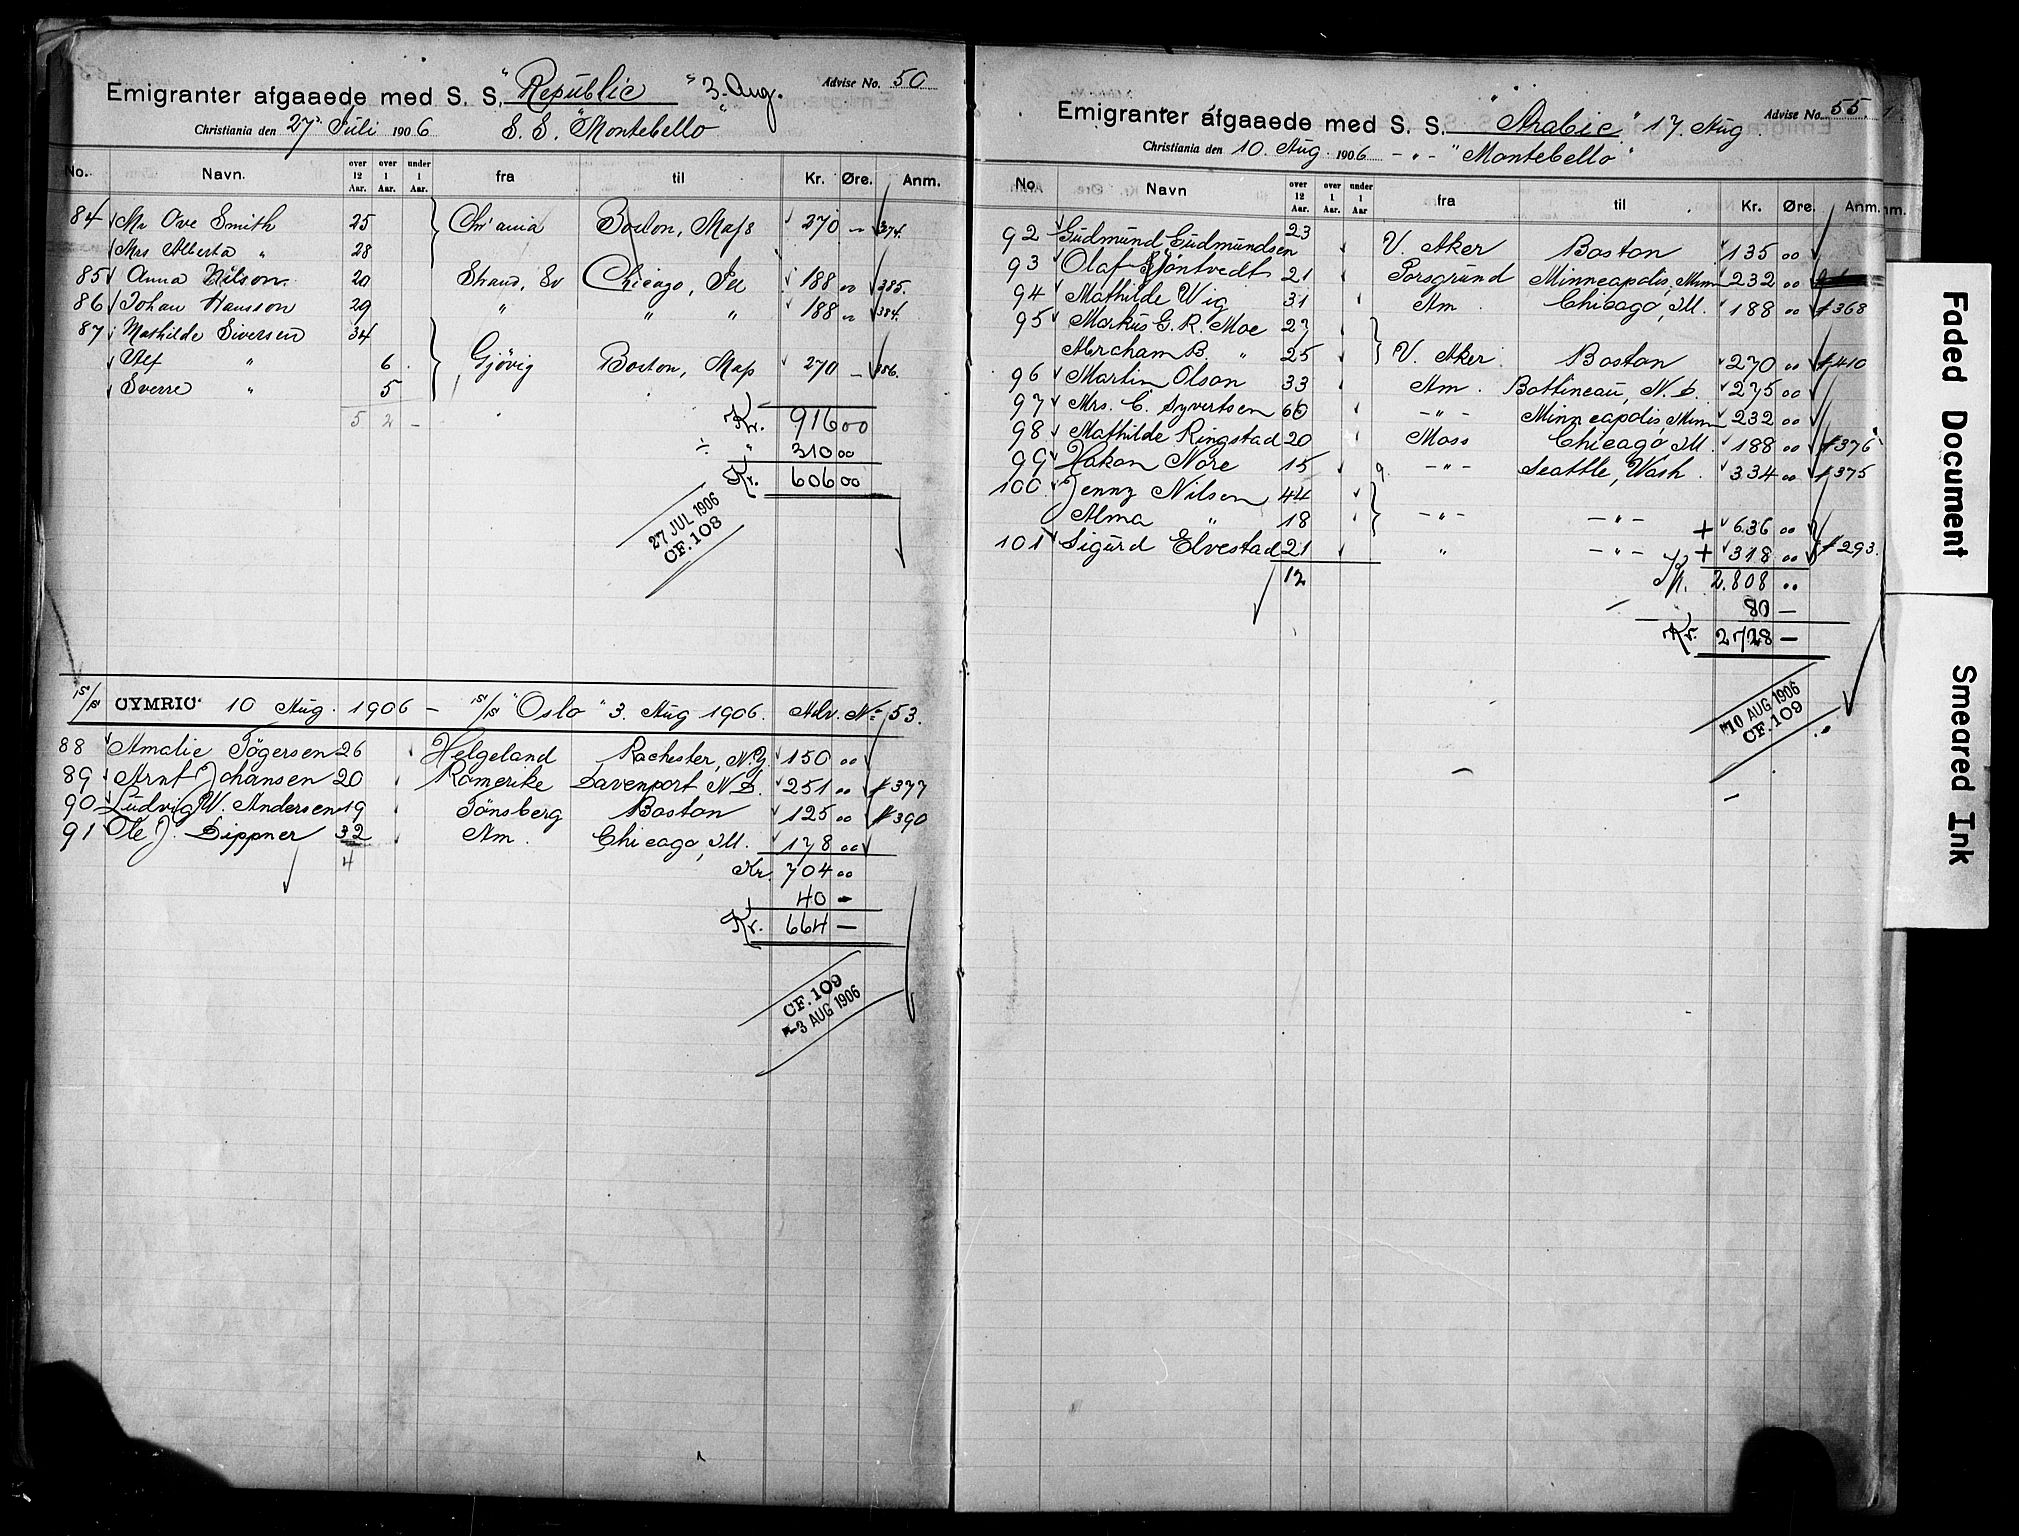 Emigranter afgaaede med S. S. "Republic" 3. Aug. Advise No. 50
Christiania den 27. Juli 1906 S. S. "Montebello"
No. Navn. over 12 Aar. over 1 Aar. under 1 Aar. fra til Kr. Øre. Anm.
84 Mr Ove Smith 25 Chr'ania Boston, Mass 270 " 374.
Mrs Alberta " 28
85 Anna Nilson 20 Strand, Sv Chicago, Ill 188 00 385.
86 Johan Hansson 29 " " " 188 " 384.
87 Mathilde Siversen 34
Alf " 6 Gjövig Boston, Mass 270 — 386.
Sverre " 5
5 2 —
Kr. 916 00
÷ " 310 00
Kr. 606 00
27 JUL 1906
CF. 108
S/S CYMRIC 10 Aug. 1906 — S/S "Oslo" 3. Aug 1906. Adv. No 53.
88 Amalie Tögersen 26 Helgeland Rochester, N.Y. 150 00
89 Arnt Johansen 20 Romerike Davenport N.D. 251 00 # 377
90 Ludvig W. Andersen 19 Tönsberg Boston 125 00 # 390
91 Ole J. Dippner 32 Am. Chicago, Ill. 178 00
4 Kr. 704 00
40 —
Kr. 664 —
CF. 109
-3 AUG 1906
Emigranter afgaaede med S. S. "Arabic" 17. Aug Advise No. 55.
Christiania den 10. Aug. 1906 - " - "Montebello"
No Navn over 12 Aar. over 1 Aar. under 1 Aar fra til Kr. Øre. Anm.
92 Gudmund Gudmundsen 23 V. Aker Boston 135 00
93 Olaf Sjöntvedt 21 Porsgrund Minneapolis, Minn 232 00
94 Mathilde Wig 31 Am. Chicago, Ill. 188 00 # 368
95 Markus G. R. Moe 27
Abraham B. " 25 V. Aker Boston 270 00 # 410
96 Martin Olson 33 Am. Bottineau, N. D. 275 00
97 Mrs. C. Syvertsen 60 - " - Minneapolis, Minn 232 00
98 Mathilde Ringstad 20 Moss Chicago, Ill. 188 00 # 376
99 Hakon Nore 15 - " - Seattle, Wash. 334 00 # 375
100 Jenny Nilsen 44
Alma " 18 - " - - " - + 636 00
101 Sigurd Elvestad 21 " - " - + 318 00 # 293.
12 Kr. 2.808 00
80 —
Kr. 2728 —
10 AUG 1906
CF. 109
Faded Document
Smeared Ink